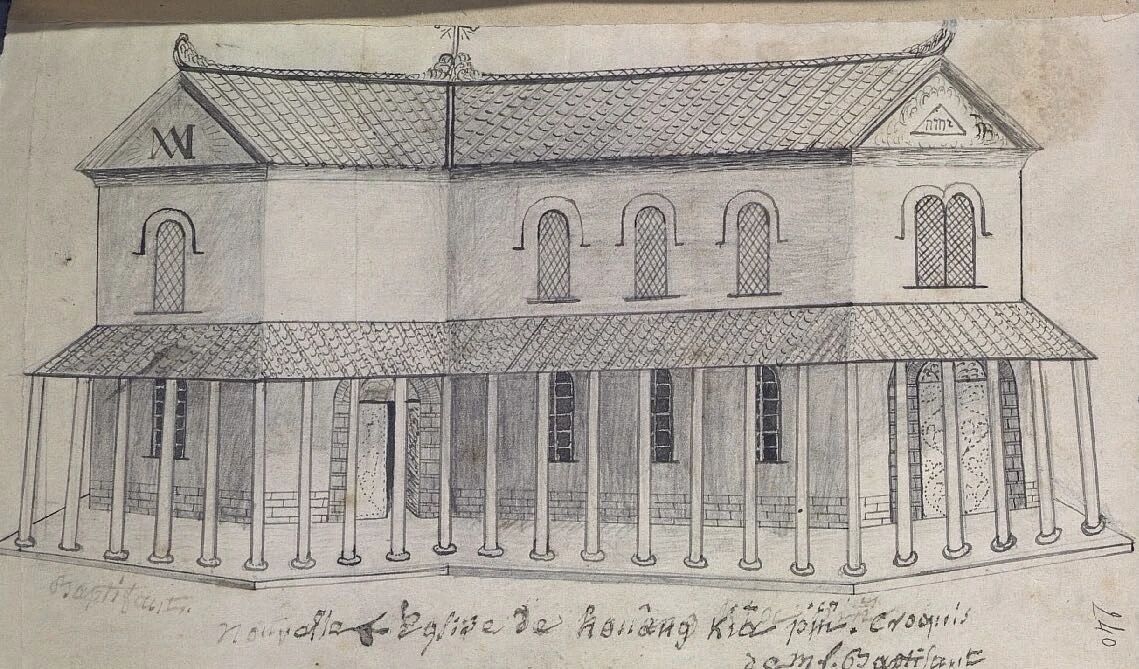 יהוה
Baptifaut.
Nouvelle Eglise de houâng Kiā Croquis
de Baptifaut